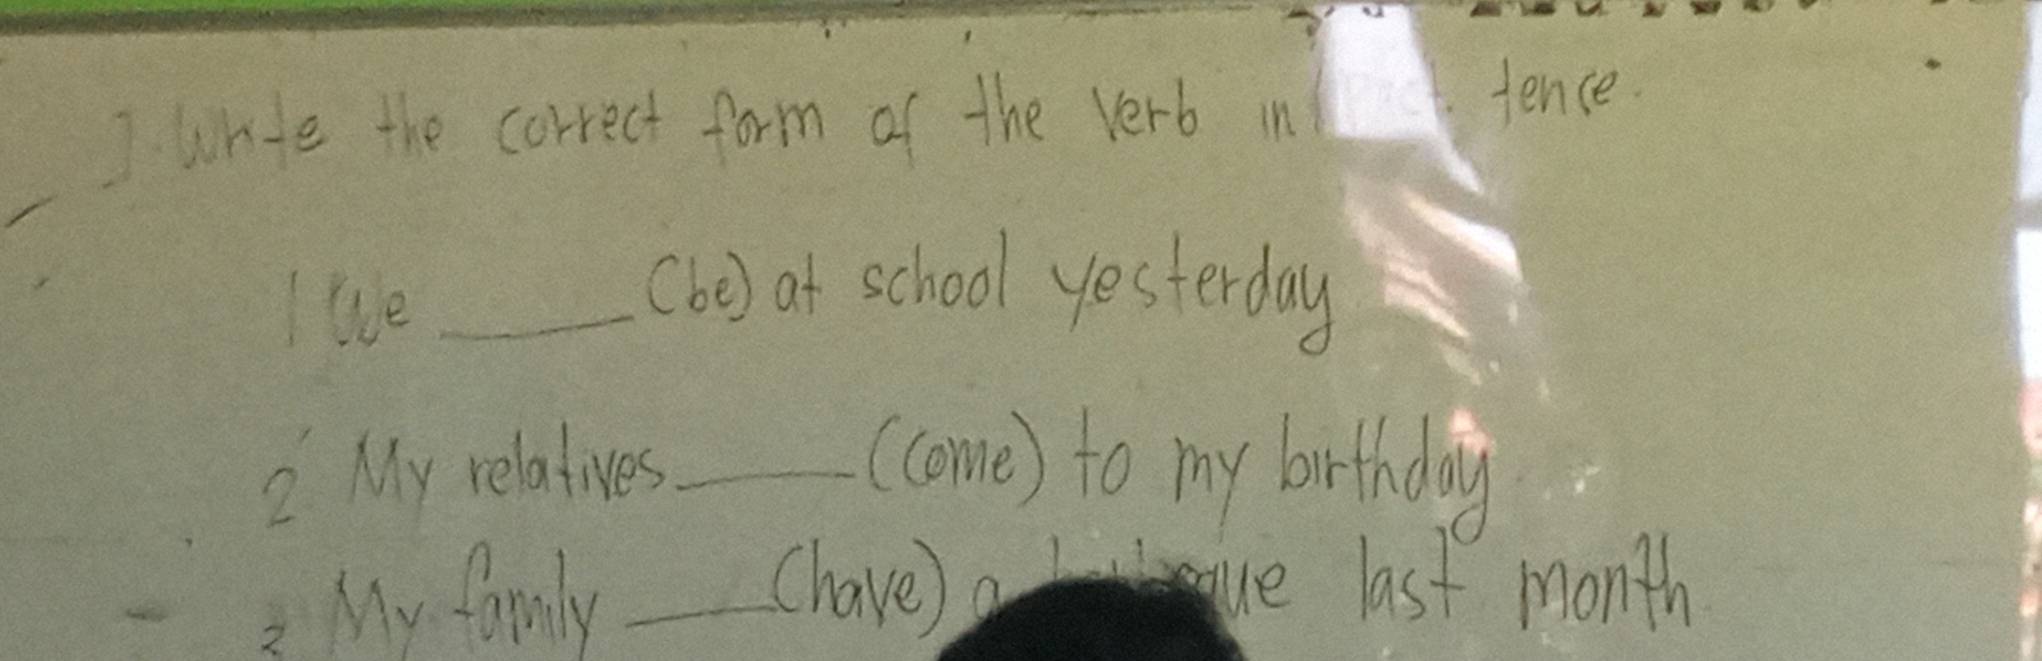 I. Write the correct form of the verb in tence.
1 We ______ (be) at school yesterday
2 My relatives ______ (come) to my birthday
3 My family ______ (have) a last month